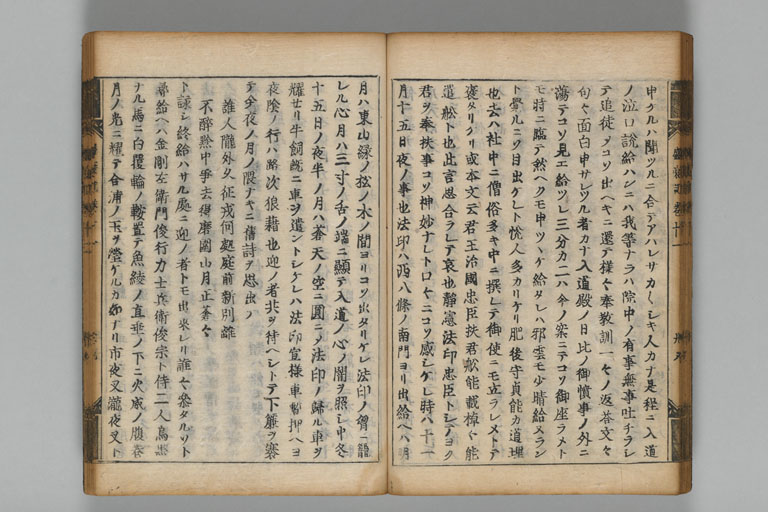 申ケルハ聞ツルニ合テアハレサカ〱シキ人カナ是程ニ入道
ノ泣口説給ハンニハ我等ナラハ院中ノ有事無事吐チラシ
テ追従ヲコソ出ヘキニ還テ様々奉教訓一々ノ返答文々
句々面白申サレツル者カナ入道殿ノ日比ノ御憤事ノ外ニ
蕩テコソ見エ給ツレ三分カ二ハ今ノ案ニテコソ御座ラメト
モ時ニ臨テ然ヘクモ申ツヽケ給タレハ邪雲モ少晴給ヌラン
ト覺ルニソ目出ケレト恍人多カリケリ肥後守貞能カ道理
也去ハ社中ニ僧俗多キ中ニ撰レテ御使ニモ立ラレメトテ
褒タリケリ或本文云君王治國忠臣扶君歟能載棹ヽ能
遣舩ト也此言思合ラレテ哀也靜憲法印忠臣トシテヨク
君ヲ奉扶事コソ神妙ナレト口々ニコソ感シケレ時ハ十一
月十五日夜ノ事也法印ハ西八條ノ南門ヨリ出給ヘハ明
月ハ東山緑ノ松ノ木ノ間ヨリコソ出タリケレ法印ノ胷ニ籠
レル心月ハ三寸ノ舌ノ端ニ顯テ入道ノ心ノ闇ヲ照シ中冬
十五日ノ夜半ノ月ハ蒼天ノ空ニ圓ニノ法印ノ歸ル車ヲ
耀セリ牛飼既ニ車ヲ遣ントシケレハ法印宣様車暫押ヘヨ
夜陰ノ行ハ路次狼藉也迎ノ者共ヲ待ヘシトテ下簾ヲ褰
テ余夜ノ月ノ隈ナキニ舊詩ヲ思出ノ
誰人隴外久征戎何處庭前新別離
不醉黔中爭去得磨圍山月正蒼々
ト詠シ終給ハサル處ニ迎ノ者トモ出來レリ誰々參タルソト
尋給ヘハ金剛左衛門俊行力士兵衛俊宗ト侍二人烏黒
ナル馬ニ白覆輪ノ鞍置テ魚綾ノ直垂ノ下ニ火威ノ腹巻
月ノ光ニ耀テ合浦ノ玉ヲ瑩ケルカ如ナリ市夜叉瀧夜叉ト